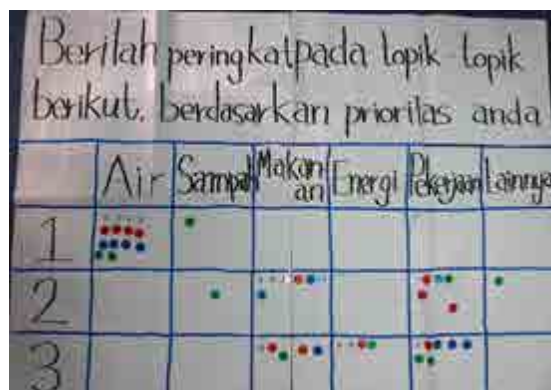 Berilah peringkat pada topik-topik
berikut, berdasarkan prioritas anda
Air Sampah Makanan Energi Pekerjaan Lainnya
1
2
3